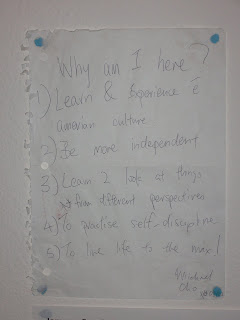 Why am I here?
1) Learn & Experience
culture
2) Be more independent
3) Learn 2 look at things
from different perspectives
4) To practise self-discipline
5) To live life to the max!